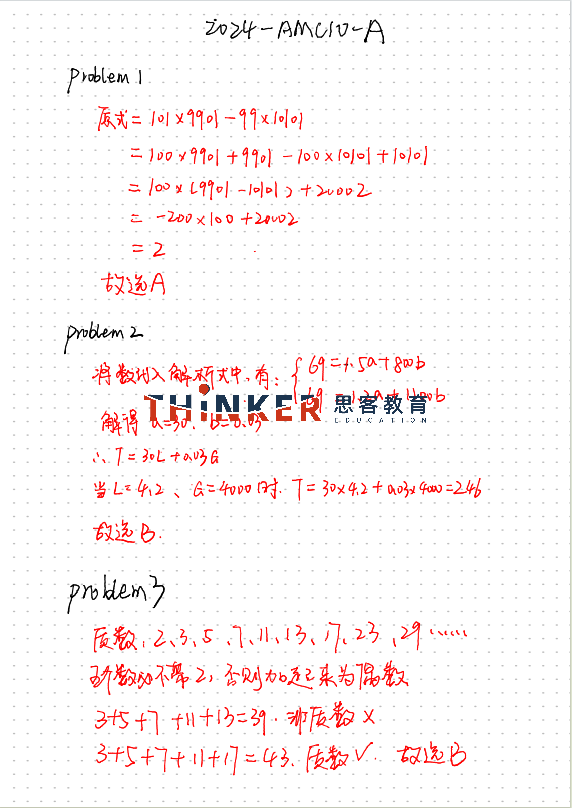 2024-AMC10-A
problem 1
原式=101×9901-99×10101
=100×9901+9901-100×10101+10101
=100×(9901-10101)+20002
=-200×100+20002
=2
故选A
problem 2
将数代入解析式中,有: {69=1.5a+800b
69=1.2a+1100b
THiNKER 思客教育
EDUCATION
解得 a=30, b=0.03
∴T=30L+0.03G
当L=4.2、G=4000时. T=30×4.2+0.03×4000=246
故选B.
problem 3
质数, 2、3、5、7、11、13、17、23、29……
5个数必不带2, 否则加起来为偶数
3+5+7+11+13=39. 非质数×
3+5+7+11+17=43. 质数√. 故选B